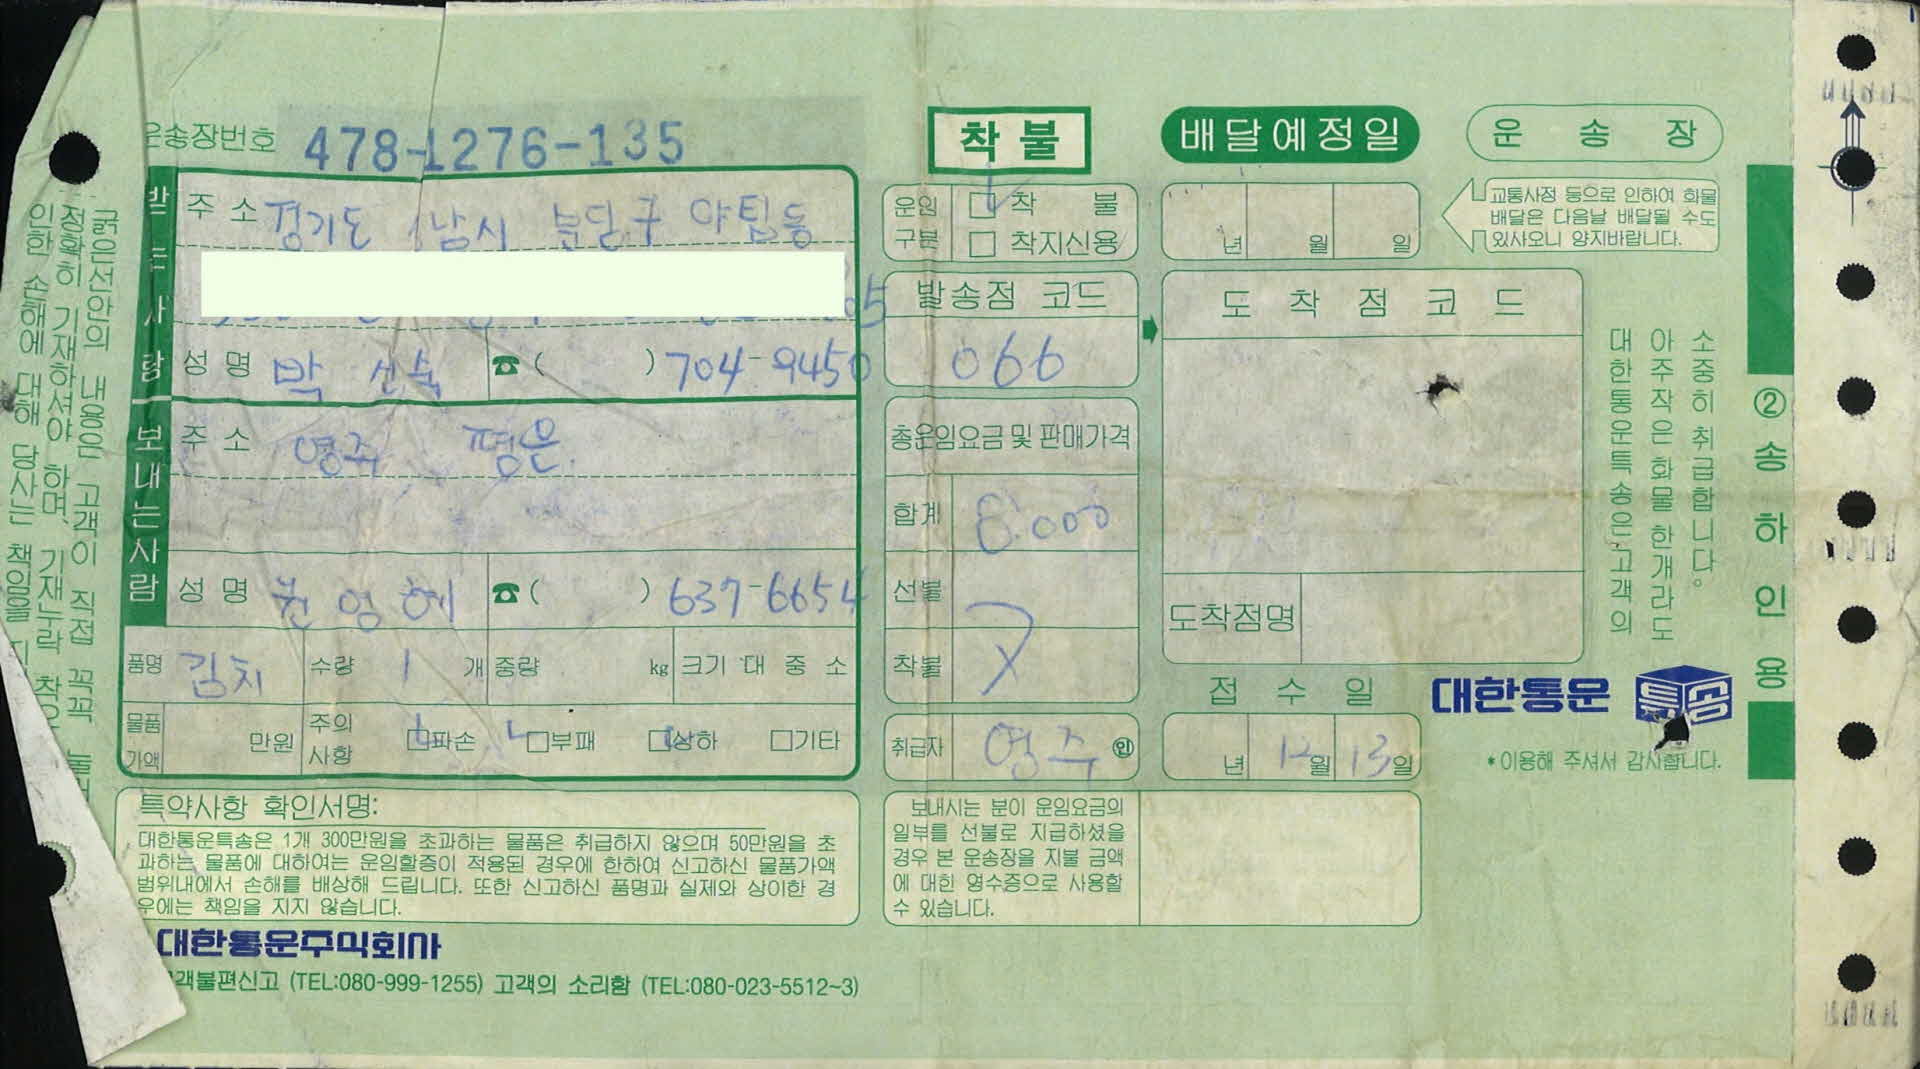 운송장번호 478-1276-135
착 불
배달예정일
운 송 장
받는사람
주소 경기도 성남시 분당구 야탑동
성명 박 선숙 ☎( ) 704-9450
보내는사람
주소 영주 평은
성명 권영혜 ☎( ) 637-6654
품명 김치 수량 1 개 중량 kg 크기 대 중 소
물품가액 만원 주의사항 □파손 □부패 □상하 □기타
특약사항 확인서명:
대한통운특송은 1개 300만원을 초과하는 물품은 취급하지 않으며 50만원을 초
과하는 물품에 대하여는 운임할증이 적용된 경우에 한하여 신고하신 물품가액
범위내에서 손해를 배상해 드립니다. 또한 신고하신 품명과 실제와 상이한 경
우에는 책임을 지지 않습니다.
대한통운주식회사
고객불편신고 (TEL:080-999-1255) 고객의 소리함 (TEL:080-023-5512~3)
운임구분 □ 착 불
□ 착지신용
발송점 코드
066
총운임요금 및 판매가격
합계 8.000
선불
착불
취급자 영주 ㊞
보내시는 분이 운임요금의
일부를 선불로 지급하셨을
경우 본 운송장을 지불 금액
에 대한 영수증으로 사용할
수 있습니다.
년 월 일
교통사정 등으로 인하여 화물
배달은 다음날 배달될 수도
있사오니 양지바랍니다.
도 착 점 코 드
도착점명
접 수 일
년 12월 13일
대한통운 특송
*이용해 주셔서 감사합니다.
소중히 취급합니다.
아주작은 화물 한개라도
대한통운특송은 고객의
② 송하인용
굵은선안의 내용은 고객이 직접 꼭꼭
정확히 기재하셔야 하며, 기재누락
인한 손해에 대해 당사는 책임을